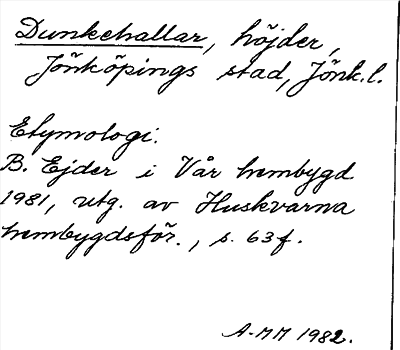 Dunkehallar, höjder,
Jönköpings stad, Jönk.l.
Etymologi.
B. Ejder i Vår hembygd
1981, utg. av Huskvarna
hembygdsför., s. 63f.
A-MM 1982.